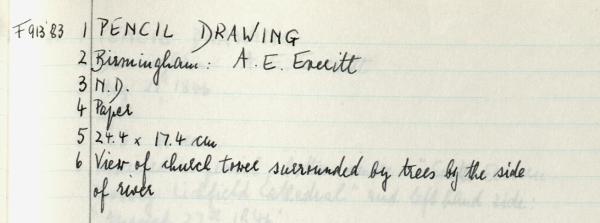 F913'83 1 PENCIL DRAWING
2 Birmingham: A. E. Everitt
3 N.D.
4 Paper
5 24.4 x 17.4 cm
6 View of church tower surrounded by trees by the side
of river
Lichfield Cathedral" and left hand side: